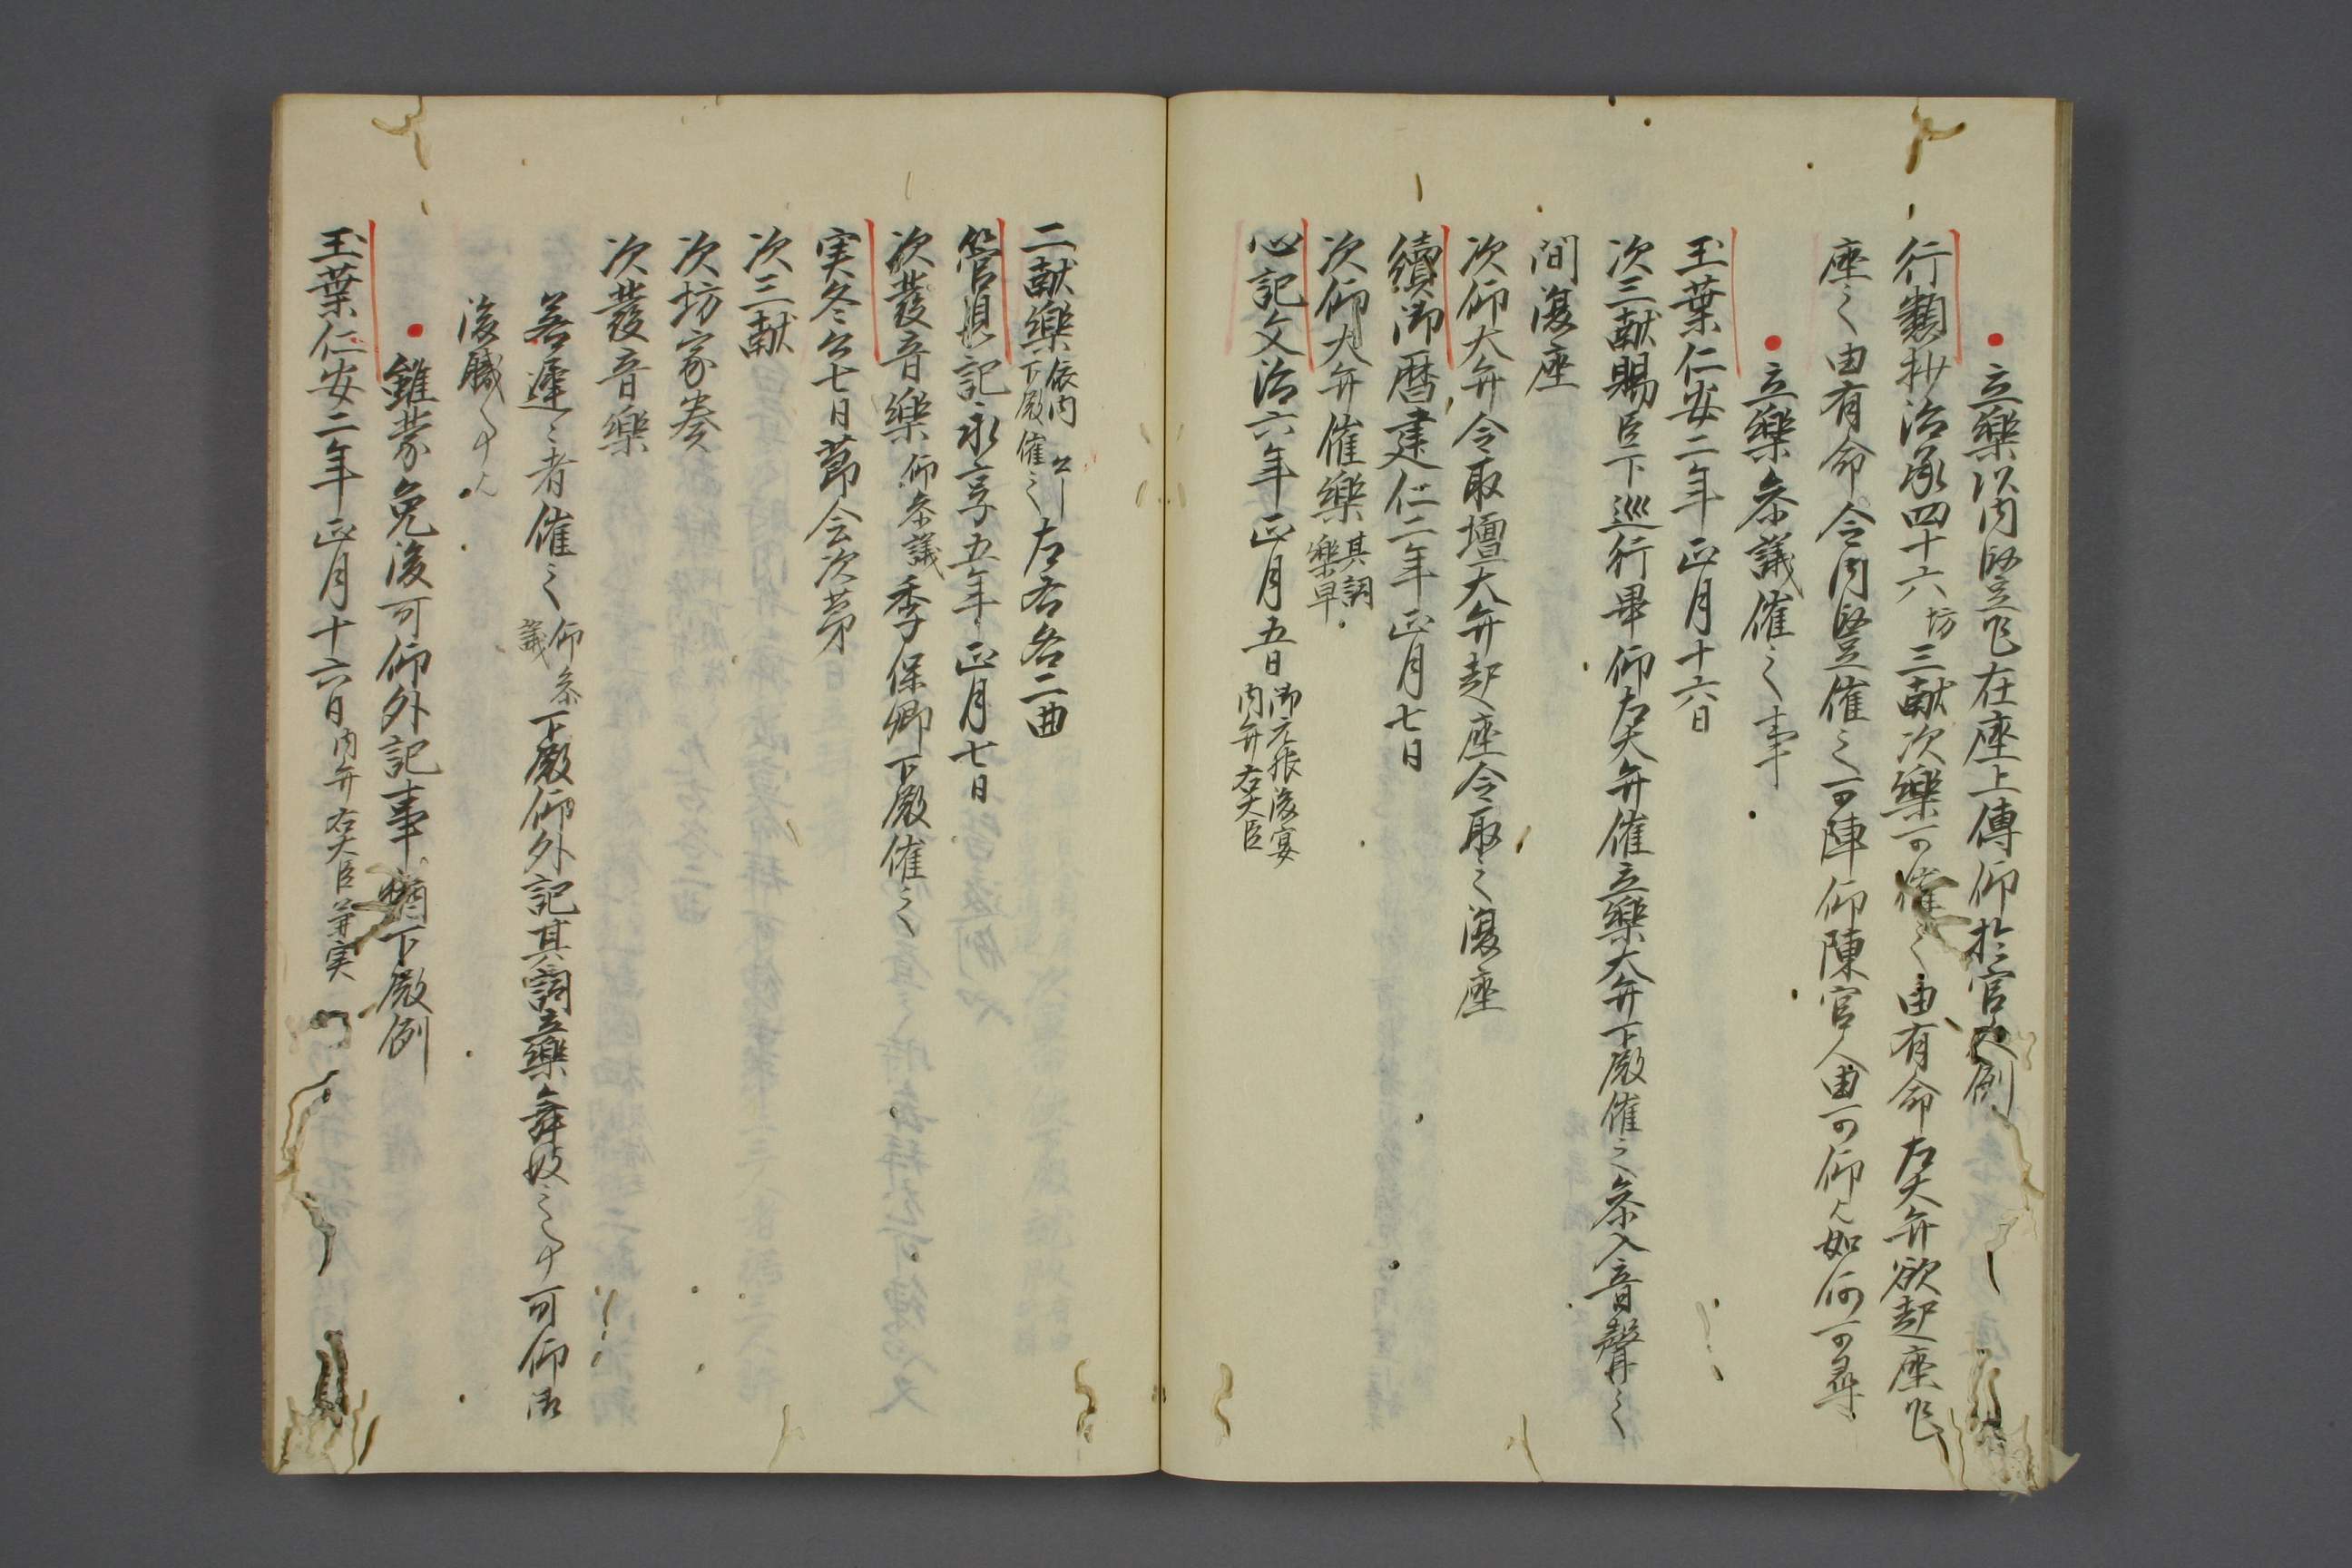 立樂以内竪乍在座上傳仰於官人例
行類抄治承四十六坊三献次樂可催之由有命左大弁欲起座乍
座之由有命令内竪催之可陣仰陳官人由可仰又如何可尋
立樂参議催之事
玉葉仁安二年正月十六日
次三献賜臣下巡行畢仰左大弁催立樂大弁下殿催之参入音聲之
間復座
次仰大弁令取壇大弁起座令取之復座
續御暦建仁二年正月七日
次仰大弁催樂其詞樂早
心記文治六年正月五日御元服後宴内弁右大臣
二献樂依内弁下殿催之左右各二曲
管見記永享五年正月七日
次發音樂仰参議季保卿下殿催之
実冬公七日節会次第
次三献
次坊家奏
次發音樂
若遅々者催之仰参議下殿仰外記其詞立樂舞妓
可仰
雖蒙免後可仰外記事下殿例
玉葉仁安二年正月十六日内弁右大臣兼実